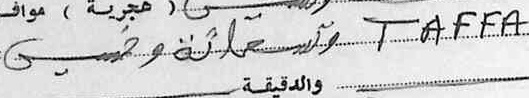 ( هجرية ) موافـ
وتسعمائة وخمسين TAFFA
والدقيقة